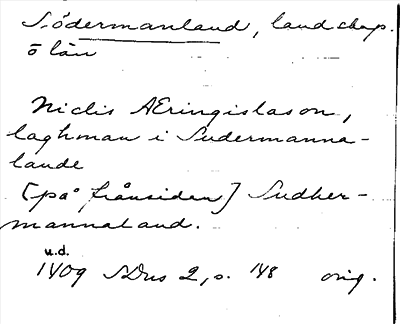 Södermanland, landskap.
o län
Niclis Æringislason,
laghman i Sudermanna-
lande
[på frånsidan] Sudher-
mannaland.
u.d.
1409 SDns 2, s. 148 orig.